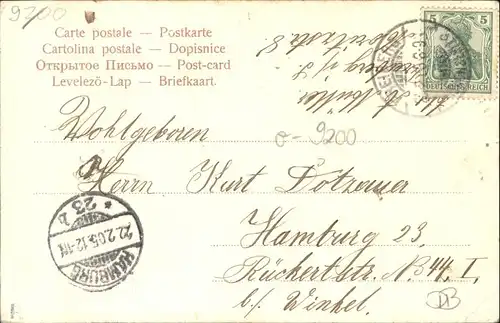 9700
Carte postale — Postkarte
Cartolina postale — Dopisnice
Открытое Письмо — Post-card
Levelező-Lap — Briefkaart.
5 5
DEUTSCHES REICH
Wohlgeboren
σ- 9200
Herrn Kurt Dotzauer
Hamburg 23.
Rückertstr. No 44. I.
b/ Winkel.
HAMBURG
22.2.05.12-1N
* 23 b
DB